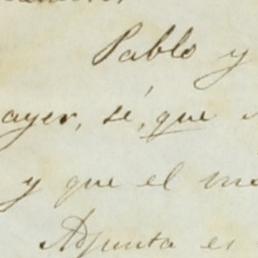 Pablo y
ayer, sé, que
y que el
Adjunta es